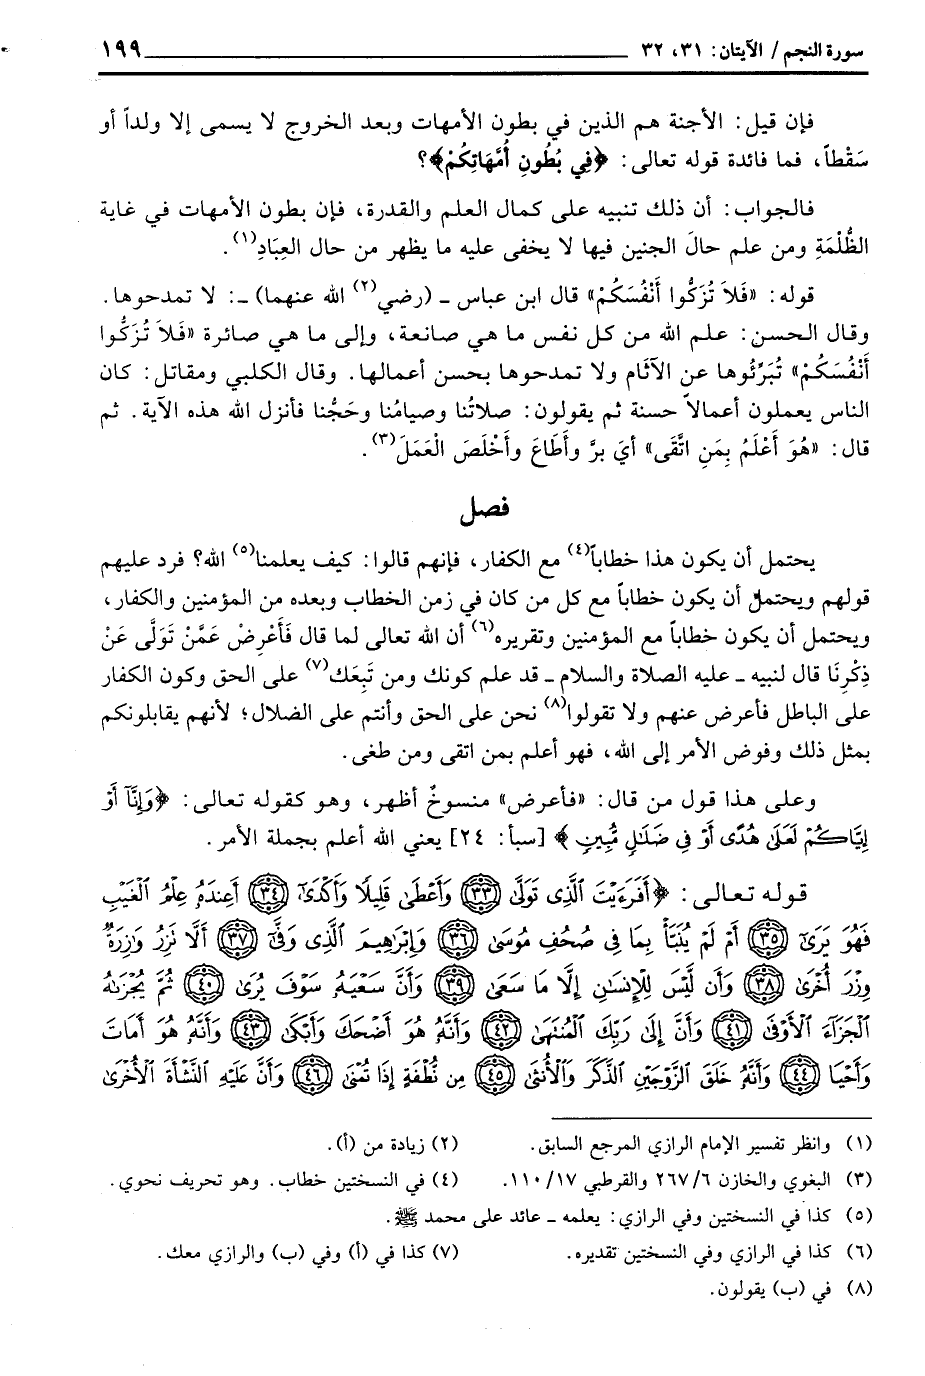 سورة النجم / الآيتان: ٣١، ٣٢ ١٩٩
فإن قيل: الأجنة هم الذين في بطون الأمهات وبعد الخروج لا يسمى إلا ولداً أو
سَقْطاً، فما فائدة قوله تعالى: ﴿فِي بُطُونِ أُمَّهَاتِكُمْ﴾؟
فالجواب: أن ذلك تنبيه على كمال العلم والقدرة، فإن بطون الأمهات في غاية
الظُّلْمَةِ ومن علم حالَ الجنين فيها لا يخفى عليه ما يظهر من حال العِبَادِ(١).
قوله: «فَلاَ تُزَكُّوا أَنْفُسَكُمْ» قال ابن عباس ـ (رضي(٢) الله عنهما) ـ: لا تمدحوها.
وقال الحسن: علم الله من كل نفس ما هي صانعة، وإلى ما هي صائرة «فَلاَ تُزَكُّوا
أَنْفُسَكُمْ» تُبَرِّئُوها عن الآثَام ولا تمدحوها بحسن أعمالها. وقال الكلبي ومقاتل: كان
الناس يعملون أعمالاً حسنة ثم يقولون: صلاتُنا وصيامُنا وحَجُّنا فأنزل الله هذه الآية. ثم
قال: «هُوَ أَعْلَمُ بِمَنِ اتَّقَى» أيَ برَّ وأَطَاعَ وأَخْلَصَ الْعَمَلَ(٣).
فصل
يحتمل أن يكون هذا خطاباً(٤) مع الكفار، فإنهم قالوا: كيف يعلمنا(٥) الله؟ فرد عليهم
قولهم ويحتمل أن يكون خطاباً مع كل من كان في زمن الخطاب وبعده من المؤمنين والكفار،
ويحتمل أن يكون خطاباً مع المؤمنين وتقريره(٦) أن الله تعالى لما قال فَأَعْرِضْ عَمَّنْ تَوَلَّى عَنْ
ذِكْرِنَا قال لنبيه ـ عليه الصلاة والسلام ـ قد علم كونك ومن تَبِعَك(٧) على الحق وكون الكفار
على الباطل فأعرض عنهم ولا تقولوا(٨) نحن على الحق وأنتم على الضلال؛ لأنهم يقابلونكم
بمثل ذلك وفوض الأمر إلى الله، فهو أعلم بمن اتقى ومن طغى.
وعلى هذا قول من قال: «فأعرض» منسوخٌ أظهر، وهو كقوله تعالى: ﴿وَإِنَّآ أَوْ
إِيَّاكُمْ لَعَلَىٰ هُدًى أَوْ فِى ضَلَٰلٍ مُّبِينٍ﴾ [سبأ: ٢٤] يعني الله أعلم بجملة الأمر.
قوله تعالى: ﴿أَفَرَءَيْتَ ٱلَّذِى تَوَلَّىٰ (٣٣) وَأَعْطَىٰ قَلِيلًا وَأَكْدَىٰٓ (٣٤) أَعِندَهُۥ عِلْمُ ٱلْغَيْبِ
فَهُوَ يَرَىٰٓ (٣٥) أَمْ لَمْ يُنَبَّأْ بِمَا فِى صُحُفِ مُوسَىٰ (٣٦) وَإِبْرَٰهِيمَ ٱلَّذِى وَفَّىٰٓ (٣٧) أَلَّا تَزِرُ وَازِرَةٌ
وِزْرَ أُخْرَىٰ (٣٨) وَأَن لَّيْسَ لِلْإِنسَٰنِ إِلَّا مَا سَعَىٰ (٣٩) وَأَنَّ سَعْيَهُۥ سَوْفَ يُرَىٰ (٤٠) ثُمَّ يُجْزَىٰهُ
ٱلْجَزَآءَ ٱلْأَوْفَىٰ (٤١) وَأَنَّ إِلَىٰ رَبِّكَ ٱلْمُنتَهَىٰ (٤٢) وَأَنَّهُۥ هُوَ أَضْحَكَ وَأَبْكَىٰ (٤٣) وَأَنَّهُۥ هُوَ أَمَاتَ
وَأَحْيَا (٤٤) وَأَنَّهُۥ خَلَقَ ٱلزَّوْجَيْنِ ٱلذَّكَرَ وَٱلْأُنثَىٰ (٤٥) مِن نُّطْفَةٍ إِذَا تُمْنَىٰ (٤٦) وَأَنَّ عَلَيْهِ ٱلنَّشْأَةَ ٱلْأُخْرَىٰ
(١) وانظر تفسير الإمام الرازي المرجع السابق. (٢) زيادة من (أ).
(٣) البغوي والخازن ٢٦٧/٦ والقرطبي ١١٠/١٧. (٤) في النسختين خطاب. وهو تحريف نحوي.
(٥) كذا في النسختين وفي الرازي: يعلمه ـ عائد على محمد ﷺ.
(٦) كذا في الرازي وفي النسختين تقديره. (٧) كذا في (أ) وفي (ب) والرازي معك.
(٨) في (ب) يقولون.